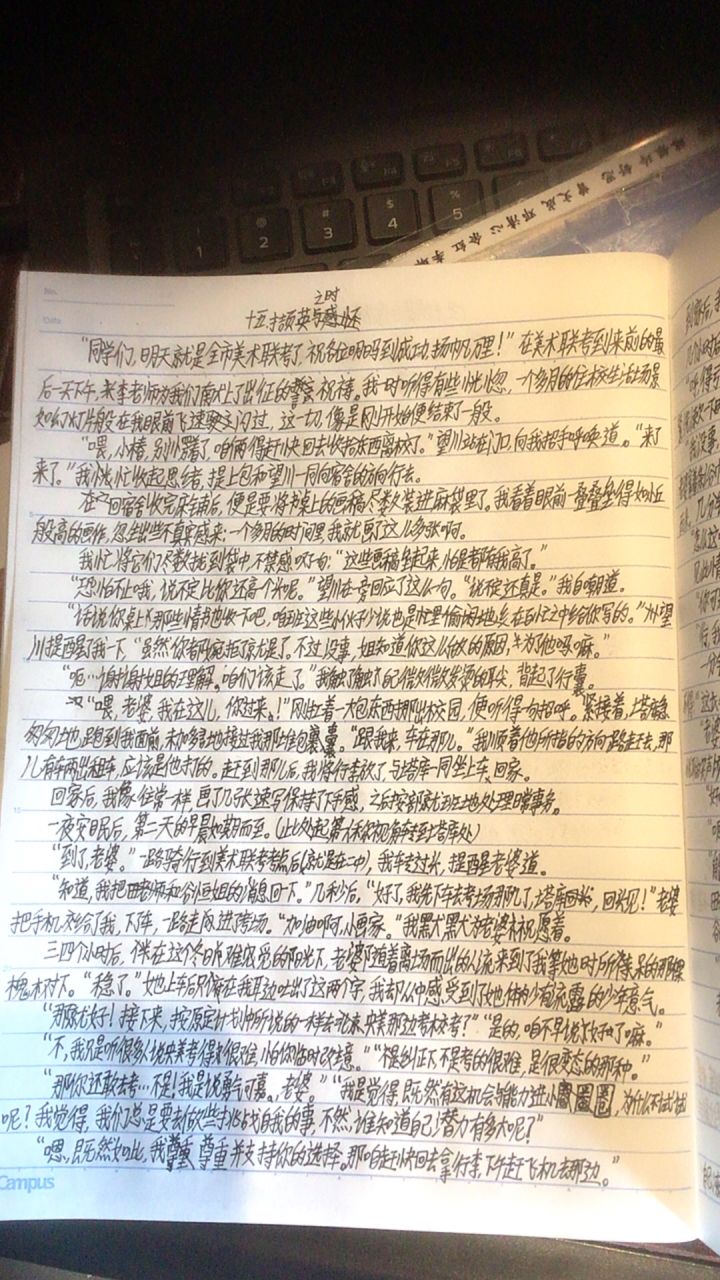 No.
Date
之时
十五.拮颉英与感怀
"同学们,明天就是全市美术联考了,祝各位明日马到成功,扬帆万里!"在美术联考到来前的最
后一天下午,李老师为我们献上了出征的祝祷。我一时听得有些恍惚,一个多月的住校生活场景
如幻灯片般在我眼前飞速闪过,这一切,像是刚开始便结束了一般。
"喂,小椿,别小蹲了,咱俩得赶快回去收拾东西离校了。"望川站在门口,向我招手呼唤道。"来了
来了。"我忙收起思绪,提上包和望川一同向宿舍的方向行去。
在回宿舍收完床铺后,便是要将书桌上的画稿尽数装进麻袋里了。我看着眼前一叠叠垒得如小丘
般高的画作,忽生出些不真实感来:一个多月的时间里,我就画了这么多张啊。
我忙将它们尽数找到袋中,不禁感叹一句:"这些画稿垒起来,怕是都有我高了。"
"恐怕不止哦,说不定比你还高个半呢。"望川在旁回应了这么句。"说不定还真是。"我自嘲道。
"话说你桌上那些情书也收一下吧,咱班这些小伙子少说也是忙里偷闲地在百忙之中给你写的。"望
川提醒了我一下,"虽然你都婉拒了就是了。不过没事,姐知道你这么做的原因,为了他吗嘛。"
"呃…谢谢姐的理解。咱们该走了。"我触了触已微微发烫的耳尖,背起了行囊。
"喂,老婆,我在这儿,你过来!"刚出着一大包东西挪出校园,便听得一句招呼。紧接着,塔库急
匆匆地跑到我面前,未加多虑地接过我那堆包裹囊。"跟我来,车在那儿。"我顺着他所指的方向一路走去,那
儿有车两出租车,应该是他打的。赶到那儿后,我将行李放了,与塔库一同坐上车,回家。
回家后,我像往常一样,画了几张速写保持了下手感,之后按部就班地处理日常事务。
一夜安眠后,第二天的早晨如期而至。(从此处起第一人称视角转到塔库处)
"到了,老婆。"一路骑行到美术联考考点后(就是在一中),我车过来,提醒老婆道。
"知道,我把田老师和谷恒姐的消息回下。"几秒后,"好了,我先下车去考场那儿了,塔库,回头见!"老婆
把手机交给了我,下车,一路走向进了考场。"加油啊,小画家。"我默默为老婆祝愿着。
三四个小时后,在这个冬日难感受的阳光下,老婆随着离场而出的人流来到了我等她时所待的那棵
槐树下。"稳了。"她上车后只在我耳边吐出了这两个字,我却从中感受到了她少有流露的少年意气。
"那就太好!接下来,按原定计划中所说的一样去北京央美那边考校考?""是的,咱不早说好了嘛。"
"不,我只是听很多人说央美考得很难,怕你临时改主意。""提纠正下,不是考的很难,是很变态的那种。"
"那你还敢去考…不是!我是说勇气可嘉。老婆。""我是觉得,既然有这机会与能力进小圈圈圈,为什么不试试
呢?我觉得,我们总是要去做些挑战自我的事,不然,谁知道自己潜力有多大呢?"
"嗯,既然如此,我尊重,尊重并支持你的选择。那咱赶快回去拿行李,下午赶飞机去那边。"
Campus